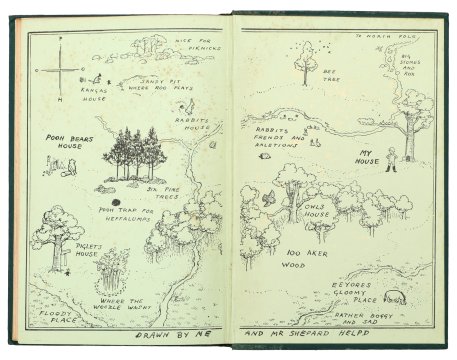 NICE FOR
PIKNICKS
TO NORTH POLE
BIG
STONES
AND
ROX
BEE
TREE
SANDY PIT
WHERE ROO PLAYS
KANGAS
HOUSE
RABBITS
HOUSE
RABBITS
FRENDS AND
RALETIONS
POOH BEARS
HOUSE
MY
HOUSE
SIX PINE
TREES
POOH TRAP FOR
HEFFALUMPS
OWLS
HOUSE
PIGLETS
HOUSE
100 AKER
WOOD
WHERE THE
WOOZLE WASNT
EEYORES
GLOOMY
PLACE
FLOODY
PLACE
RATHER BOGGY
AND SAD
DRAWN BY ME
AND MR SHEPARD HELPD